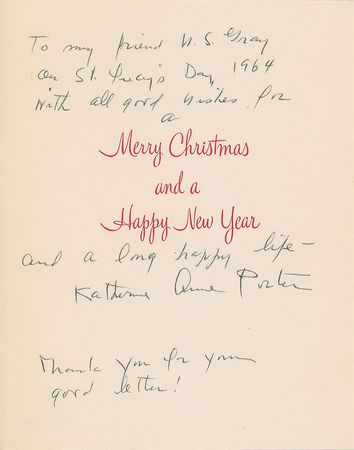 To my friend W. S. Gray
on St. Lucy's Day, 1964
With all good wishes for
a
Merry Christmas
and a
Happy New Year
and a long happy life —
Katherine Anne Porter
Thank you for your
good letter!